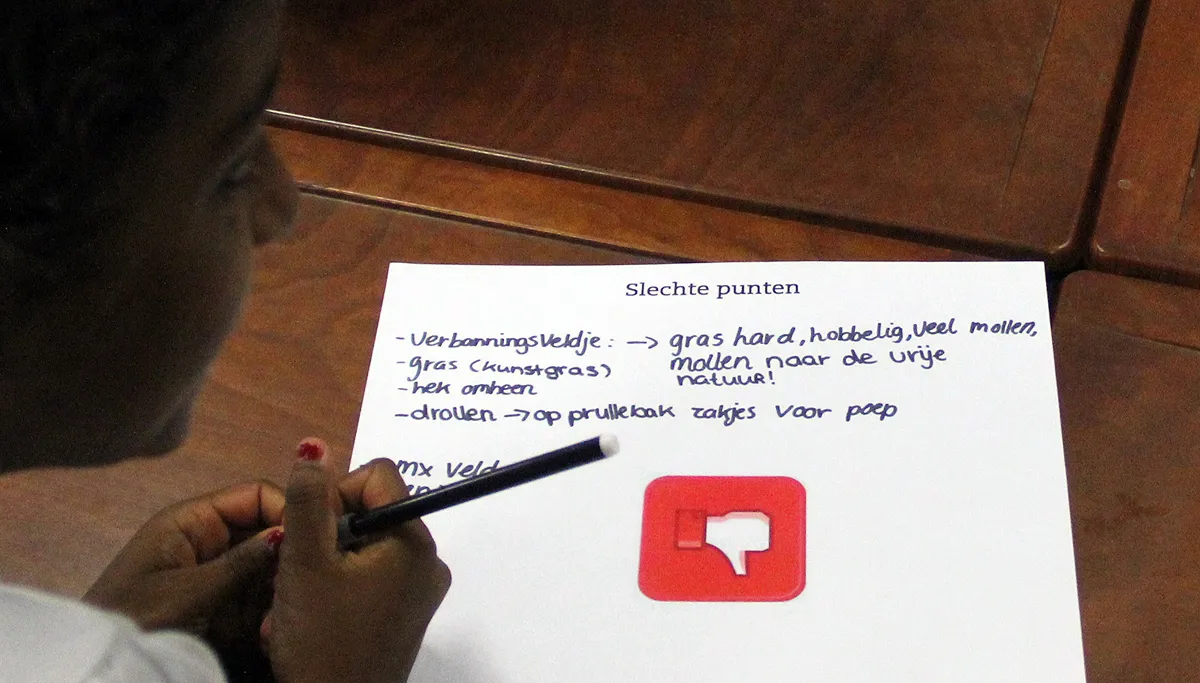 Slechte punten
- Verbannings Veldje: → gras hard, hobbelig, veel mollen,
- gras (kunstgras) mollen naar de vrije
natuur!
- hek omheen
- drollen → op prullebak zakjes voor poep
mx Veld